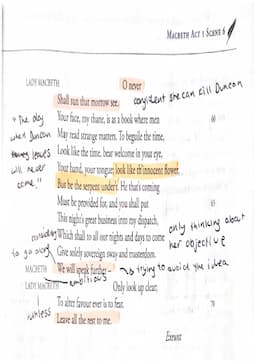 MACBETH ACT 1 SCENE 6
LADY MACBETH O never
Shall sun that morrow see. confident she can kill Duncan
Your face, my thane, is as a book where men 60
"The day
when Duncan
leaves
will never
come."
May read strange matters. To beguile the time,
Look like the time, bear welcome in your eye,
Your hand, your tongue; look like th'innocent flower,
But be the serpent under't. He that's coming
Must be provided for, and you shall put 65
This night's great business into my dispatch,
Which shall to all our nights and days to come
Give solely sovereign sway and masterdom.
only thinking about
her objective
to go along
MACBETH We will speak further – trying to avoid the idea
ambitious
LADY MACBETH Only look up clear;
To alter favour ever is to fear. 70
Leave all the rest to me.
ruthless
Exeunt